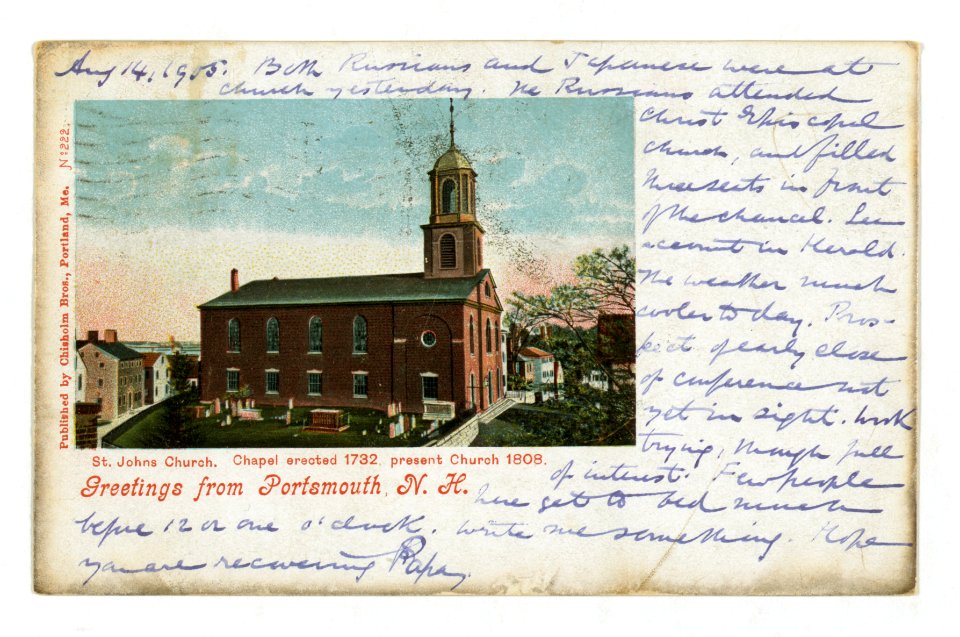 Aug 14, 1905. Both Russians and Japanese were at
church yesterday. The Russians attended
Christ Episcopal
church, and filled
three seats in front
of the chancel. See
account in Herald.
The weather much
cooler to day. Pros-
pect of early close
of conference not
yet in sight. Work
trying, though full
of interest. Few people
here get to bed much
before 12 or one o'clock. Write me something. Hope
you are recovering Papa.
Published by Chisholm Bros., Portland, Me. No 222.
St. Johns Church. Chapel erected 1732, present Church 1808.
Greetings from Portsmouth, N. H.